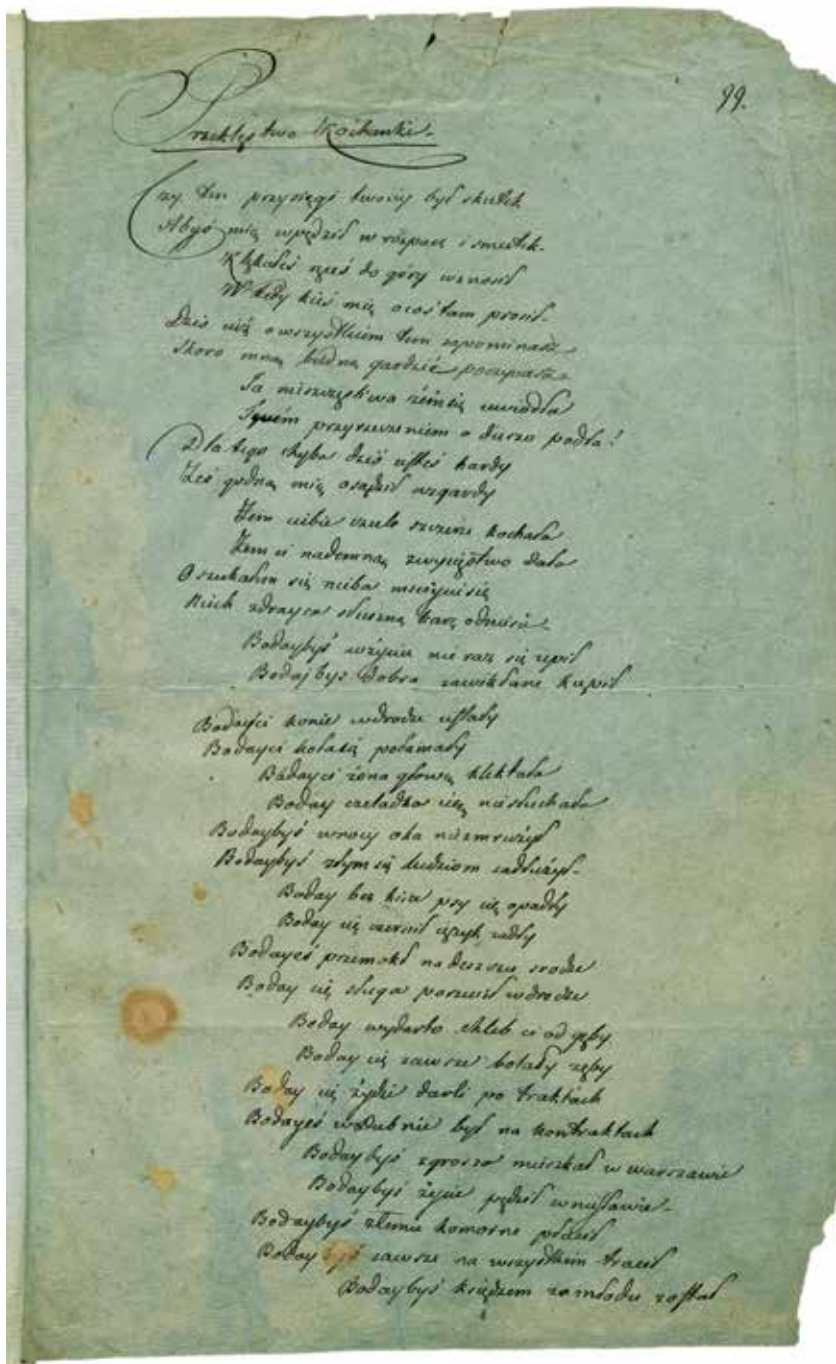 99.
Przeklęstwo Kochanki.
Czy ten przysięgi twoiey był skutek
Abyś mię wpędził w rozpacz i smutek.
Klękałeś ręce do góry wznosił
W tedy kieś mię o coś tam prosił.
Dziś iuż o wszystkiem tem zapominasz
Skoro mną biedną gardzić poczynasz
Ja nieszczęśliwa żem się uwiodła
Twém przyrzeczeniem o duszo podła!
Dla tego chyba dziś iesteś hardy
Żeś godną mię osądził wzgardy
Żem ciebie czule szczerze kochała
Żem ci nademną zwycięstwo dała
Oszukałem się nieba mścijcie się
Niech zdrayca słuszną karę odniesie.
Bodaybyś w życiu nie raz się upił
Bodajbyś dobra zawikłane kupił
Bodayci konie w drodze ustały
Bodayci koła się połamały
Bodayci żona głowę klektała
Boday czeladka cię nie słuchała
Bodaybyś w nocy oka nie zmrużył
Bodaybyś złym się ludziom zadłużył.
Boday bez kija psy cię opadły
Boday cię czernił ięzyk zadły
Bodayeś przemokł na deszczu srodze
Boday cię sługa porzucił w drodze
Boday wydarto chleb ci od gęby
Boday cię zawsze bolały zęby
Boday cię żydzi darli po traktach
Bodayeś w Dubnie był na kontraktach
Bodaybyś z grosza mieszkał w warszawie
Bodaybyś życie pędził w niesławie.
Bodaybyś złemu komorne płacił
Bodaybyś zawsze na wszystkiem tracił
Bodaybyś księdzem za młodu został